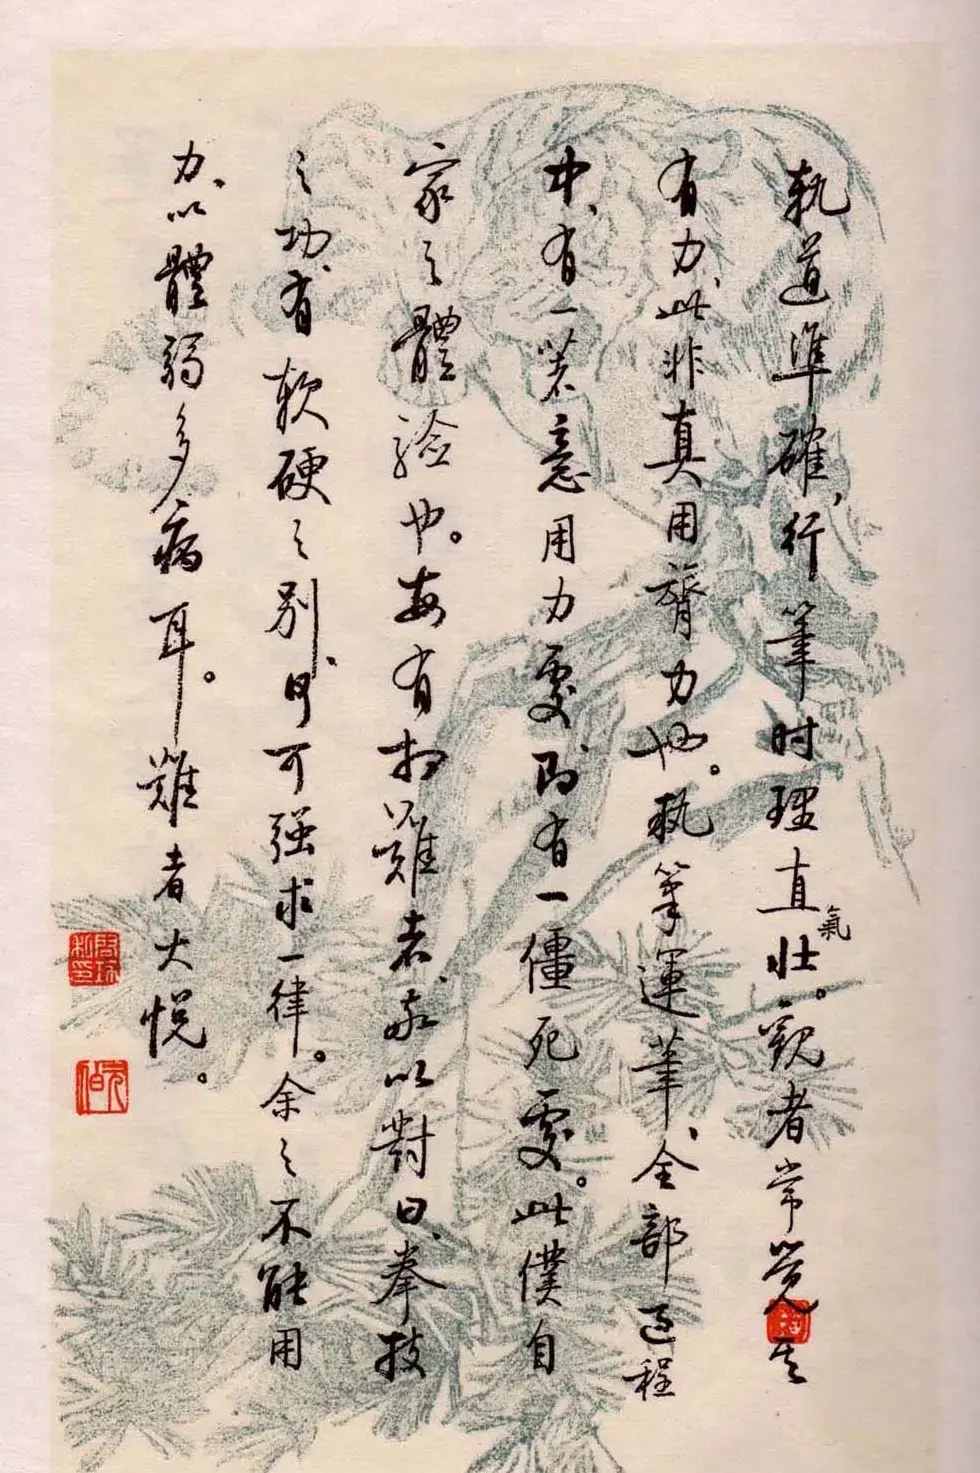 軌道準確，行筆时理直氣壯。觀者常覺其
有力，此非真用膂力也。執筆運筆，全部过程
中，有一著意用力處，即有一僵死處。此僕自
家之體驗也。每有相難者，敬以對曰，拳技
之功，有軟硬之别，何可强求一律。余之不能用
力，以體弱多病耳。難者大悦。
元白